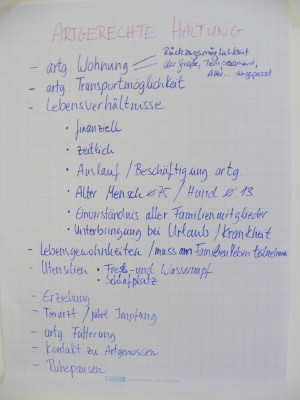 ARTGERECHTE HALTUNG
- artg Wohnung
Rückzugsmöglichkeit
der Größe, Temperament,
Alter... angepasst
- artg Transportmöglichkeit
- Lebensverhältnisse
• finanziell
• zeitlich
• Auslauf / Beschäftigung artg.
• Alter Mensch ⌀75 / Hund ⌀ 13
• Einverständnis aller Familienmitglieder
• Unterbringung bei Urlaub / Krankheit
- Lebensgewohnheiten / muss am Familienleben teilnehmen
- Utensilien • Freß- und Wassernapf
• Schlafplatz
- Erziehung
- Tierarzt / Impfung
- artg. Fütterung
- Kontakt zu Artgenossen
- Ruhepausen